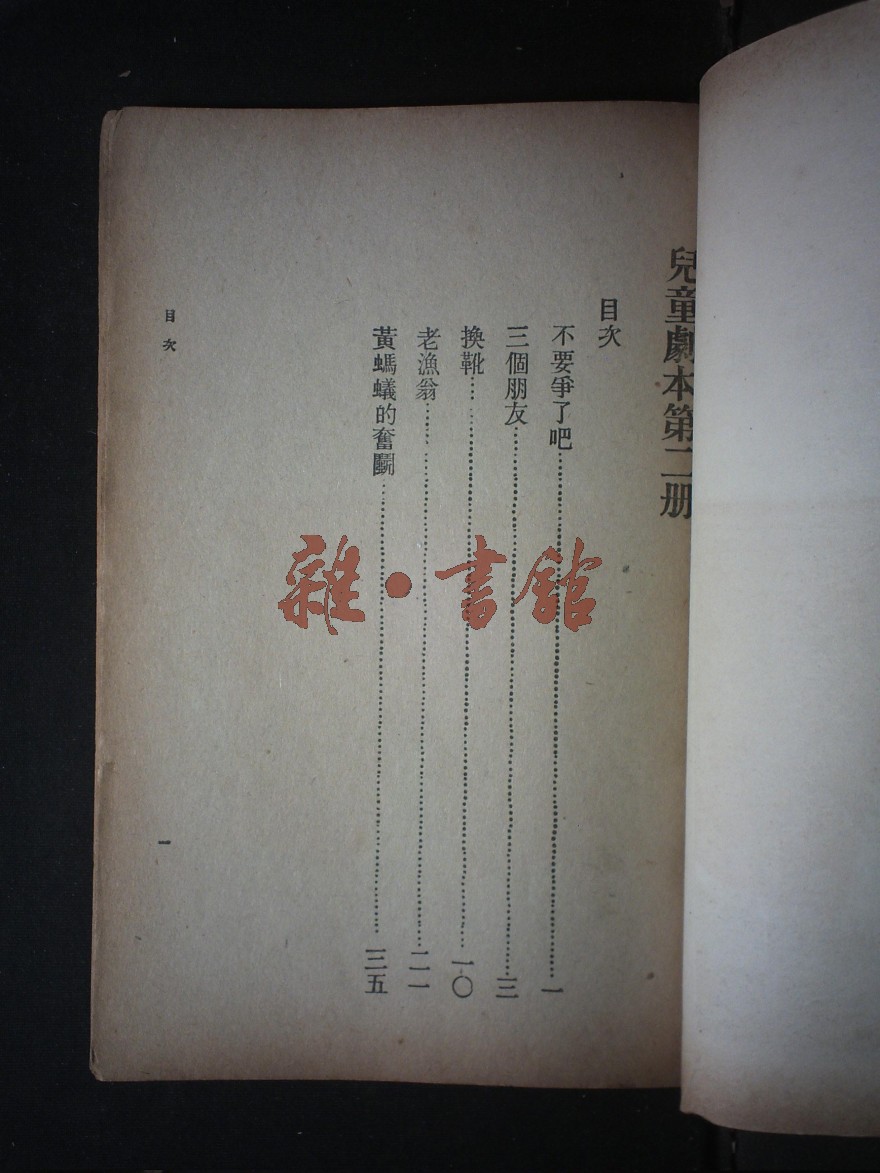 兒童劇本第二册
目次
不要爭了吧……一
三個朋友……三
換靴……一〇
老漁翁……二一
黃螞蟻的奮鬭……三五
目次
一
雜·書館